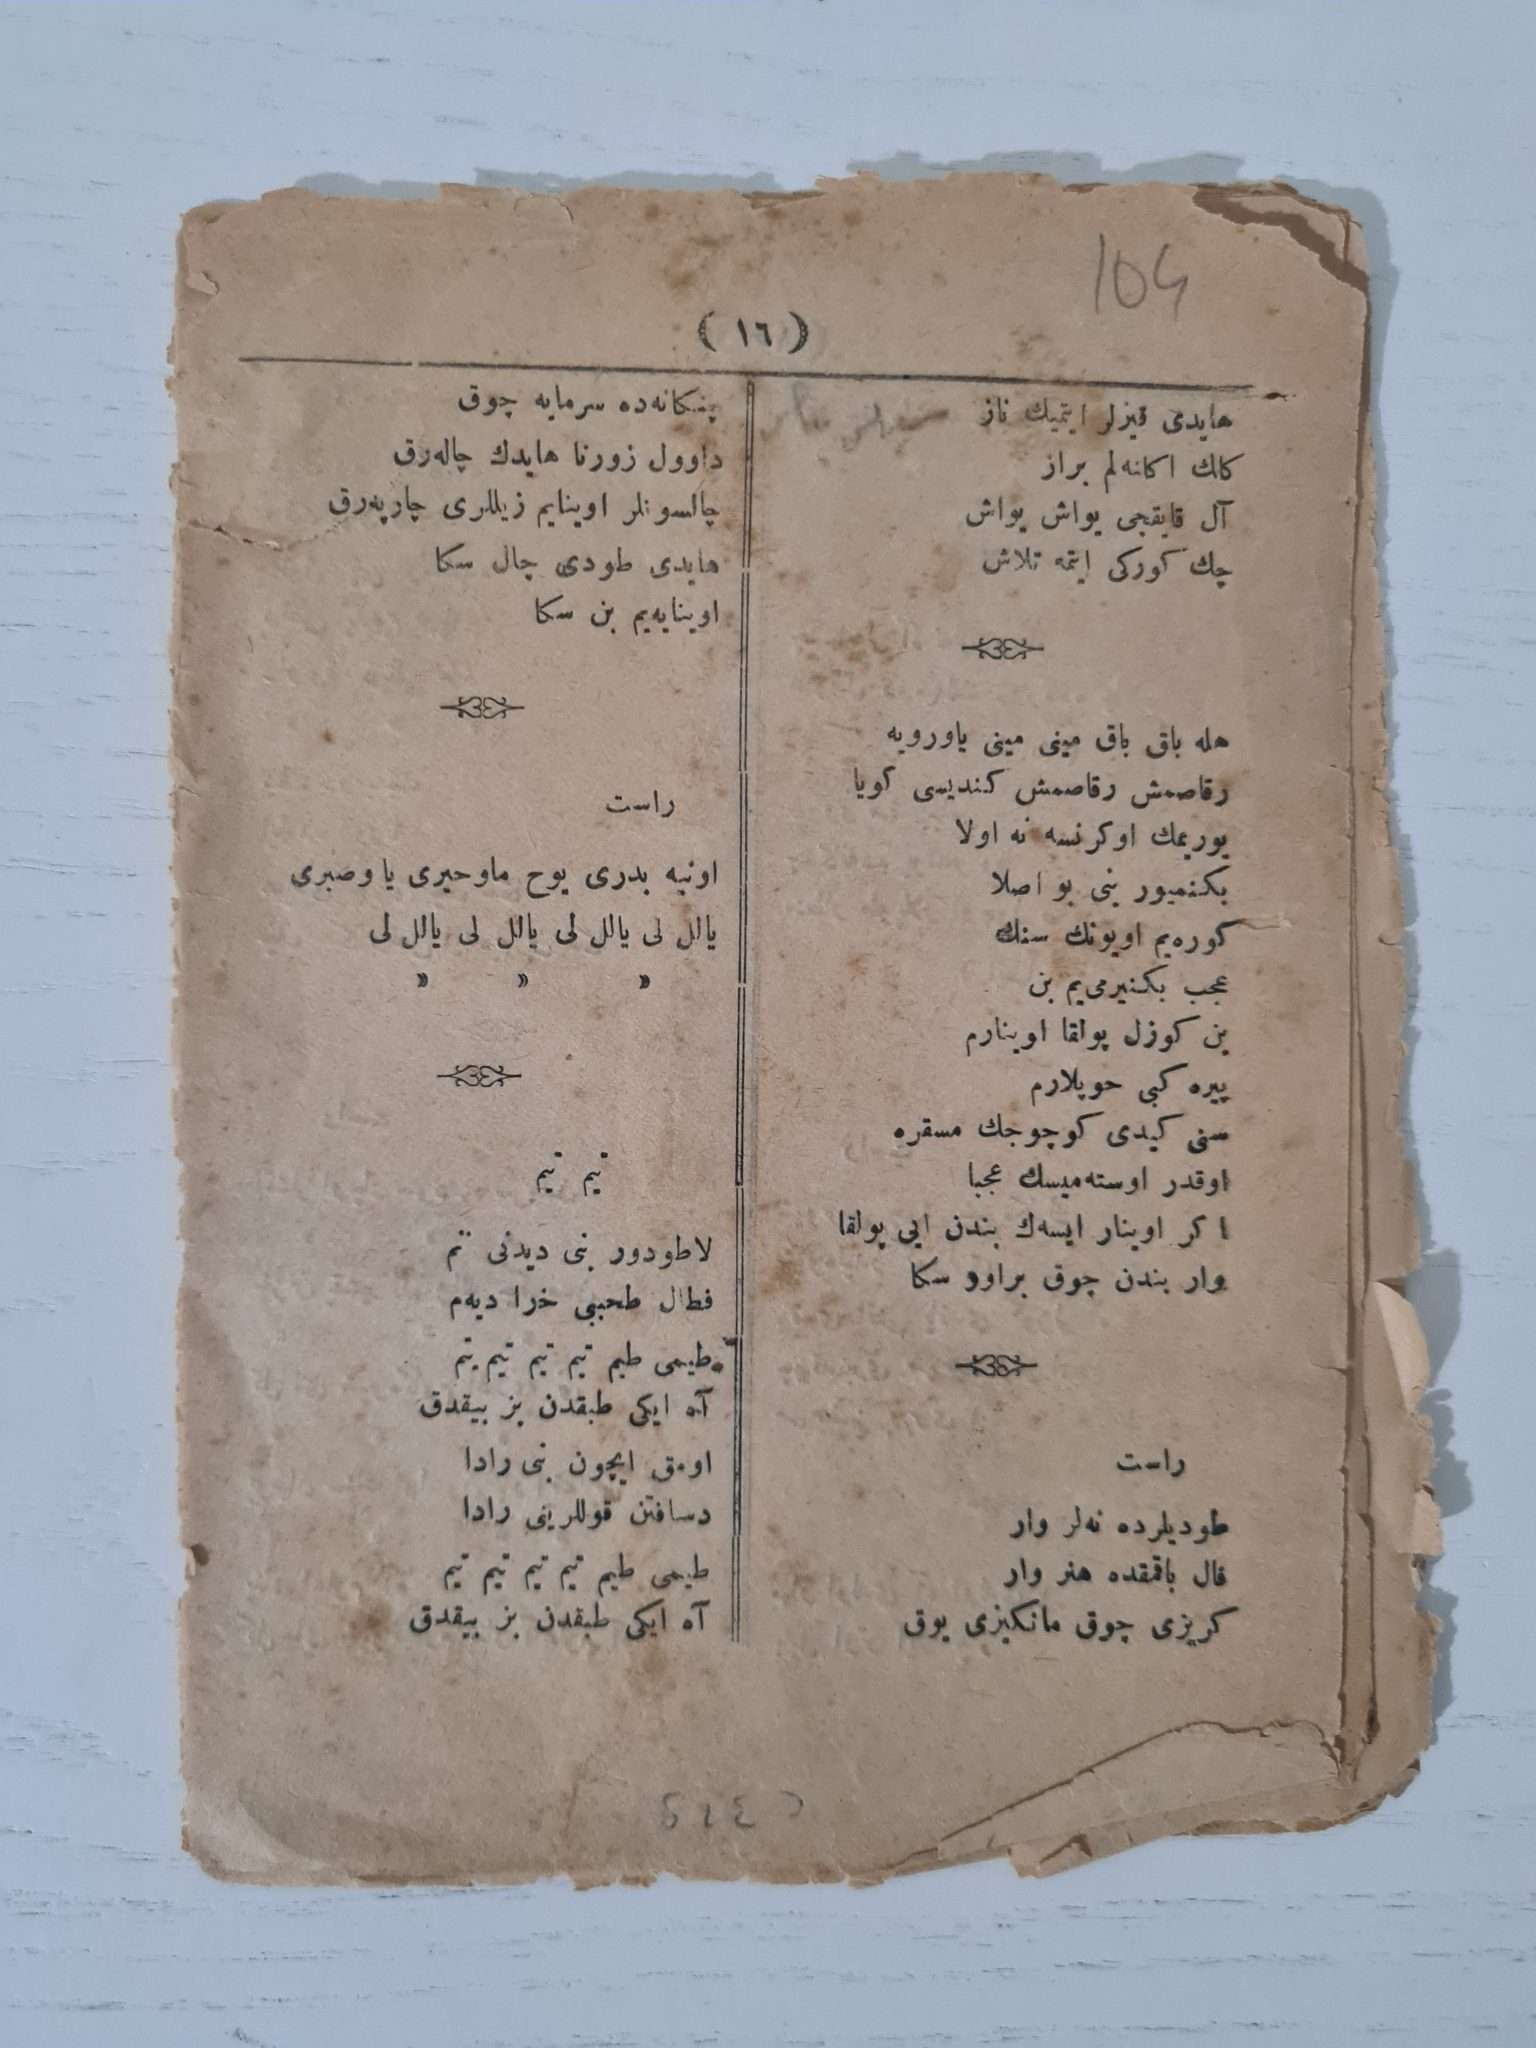 104
( ١٦ )
هايدى قيزلر ايتميك ناز
كلك اكلنه‌لم براز
آل قايقجى يواش يواش
چك كوركى ايتمه تلاش
هله باق باق مينى مينى ياورويه
رقاصمش رقاصمش كنديسى كويا
يوريمك اوكرنسه نه اولا
بكنميور بنى بو اصلا
كوره‌يم اويونك سنك
عجب بكنيرمى‌يم بن
بن كوزل پولقا اوينارم
پيره كبى حوپلارم
سنى كيدى كوچوجك مسقره
اوقدر اوسته‌ميسك عجبا
اكر اوينار ايسه‌ك بندن ايى پولقا
وار بندن چوق براوو سكا
راست
طوديلرده نه‌لر وار
فال باقمقده هنر وار
كريزى چوق مانكيزى يوق
پنكانه‌ده سرمايه چوق
داوول زورنا هايدك چاله‌رق
چالسونلر اوينايم زيللرى چارپه‌رق
هايدى طودى چال سكا
اوينايه‌يم بن سكا
راست
اونيه بدرى يوح ماوحيرى ياوصبرى
يالل لى يالل لى يالل لى يالل لى
» » »
تيم تيم
لاطودور بنى ديدنى تتم
فطال طحببى خرا ديه‌م
طيمى طيم تيم تيم تيم تيم
آه ايكى طبقدن بز بيقدق
اومق ايچون بنى رادا
دسافتن قوللرينى رادا
طيمى طيم تيم تيم تيم تيم
آه ايكى طبقدن بز بيقدق